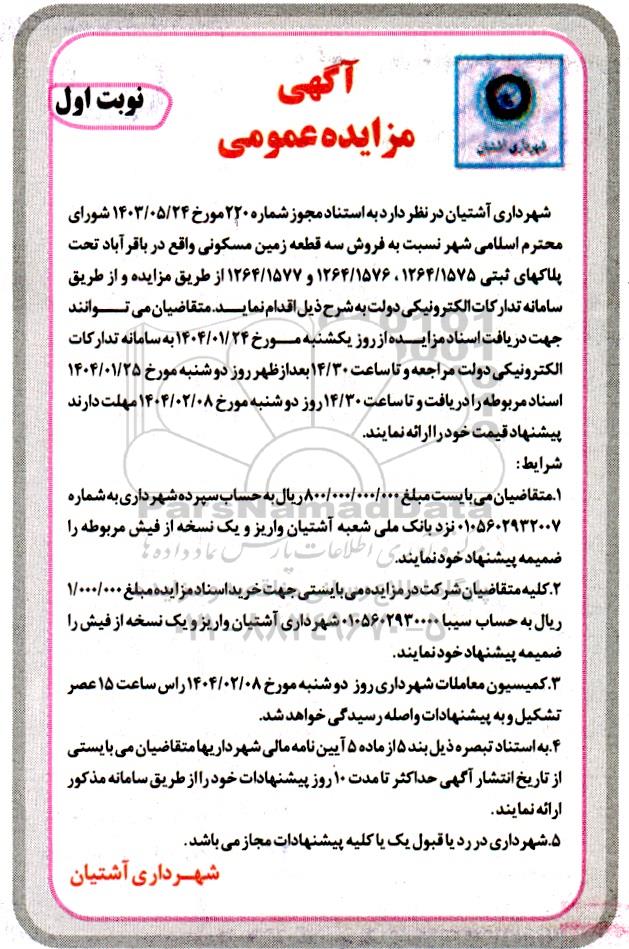 آگهی
مزایده عمومی
نوبت اول
شهرداری آشتیان
شهرداری آشتیان در نظر دارد به استناد مجوز شماره ۲۲۰ مورخ ۱۴۰۳/۰۵/۲۴ شورای
محترم اسلامی شهر نسبت به فروش سه قطعه زمین مسکونی واقع در باقرآباد تحت
پلاکهای ثبتی ۱۲۶۴/۱۵۷۵ ، ۱۲۶۴/۱۵۷۶ و ۱۲۶۴/۱۵۷۷ از طریق مزایده و از طریق
سامانه تدارکات الکترونیکی دولت به شرح ذیل اقدام نماید. متقاضیان می توانند
جهت دریافت اسناد مزایده از روز یکشنبه مورخ ۱۴۰۴/۰۱/۲۴ به سامانه تدارکات
الکترونیکی دولت مراجعه و تا ساعت ۱۴/۳۰ بعدازظهر روز دوشنبه مورخ ۱۴۰۴/۰۱/۲۵
اسناد مربوطه را دریافت و تا ساعت ۱۴/۳۰ روز دوشنبه مورخ ۱۴۰۴/۰۲/۰۸ مهلت دارند
پیشنهاد قیمت خود را ارائه نمایند.
شرایط :
۱.متقاضیان می بایست مبلغ ۸۰۰/۰۰۰/۰۰۰/۰۰۰ ریال به حساب سپرده شهرداری به شماره
۰۱۰۵۶۰۲۹۳۲۰۰۷ نزد بانک ملی شعبه آشتیان واریز و یک نسخه از فیش مربوطه را
ضمیمه پیشنهاد خود نمایند.
۲.کلیه متقاضیان شرکت در مزایده می بایستی جهت خرید اسناد مزایده مبلغ ۱/۰۰۰/۰۰۰
ریال به حساب سیبا ۰۱۰۵۶۰۲۹۳۰۰۰۰ شهرداری آشتیان واریز و یک نسخه از فیش را
ضمیمه پیشنهاد خود نمایند.
۳.کمیسیون معاملات شهرداری روز دوشنبه مورخ ۱۴۰۴/۰۲/۰۸ راس ساعت ۱۵ عصر
تشکیل و به پیشنهادات واصله رسیدگی خواهد شد.
۴.به استناد تبصره ذیل بند ۵ از ماده ۵ آیین نامه مالی شهرداریها متقاضیان می بایستی
از تاریخ انتشار آگهی حداکثر تا مدت ۱۰ روز پیشنهادات خود را از طریق سامانه مذکور
ارائه نمایند.
۵.شهرداری در رد یا قبول یک یا کلیه پیشنهادات مجاز می باشد.
شهرداری آشتیان
ParsNamadData